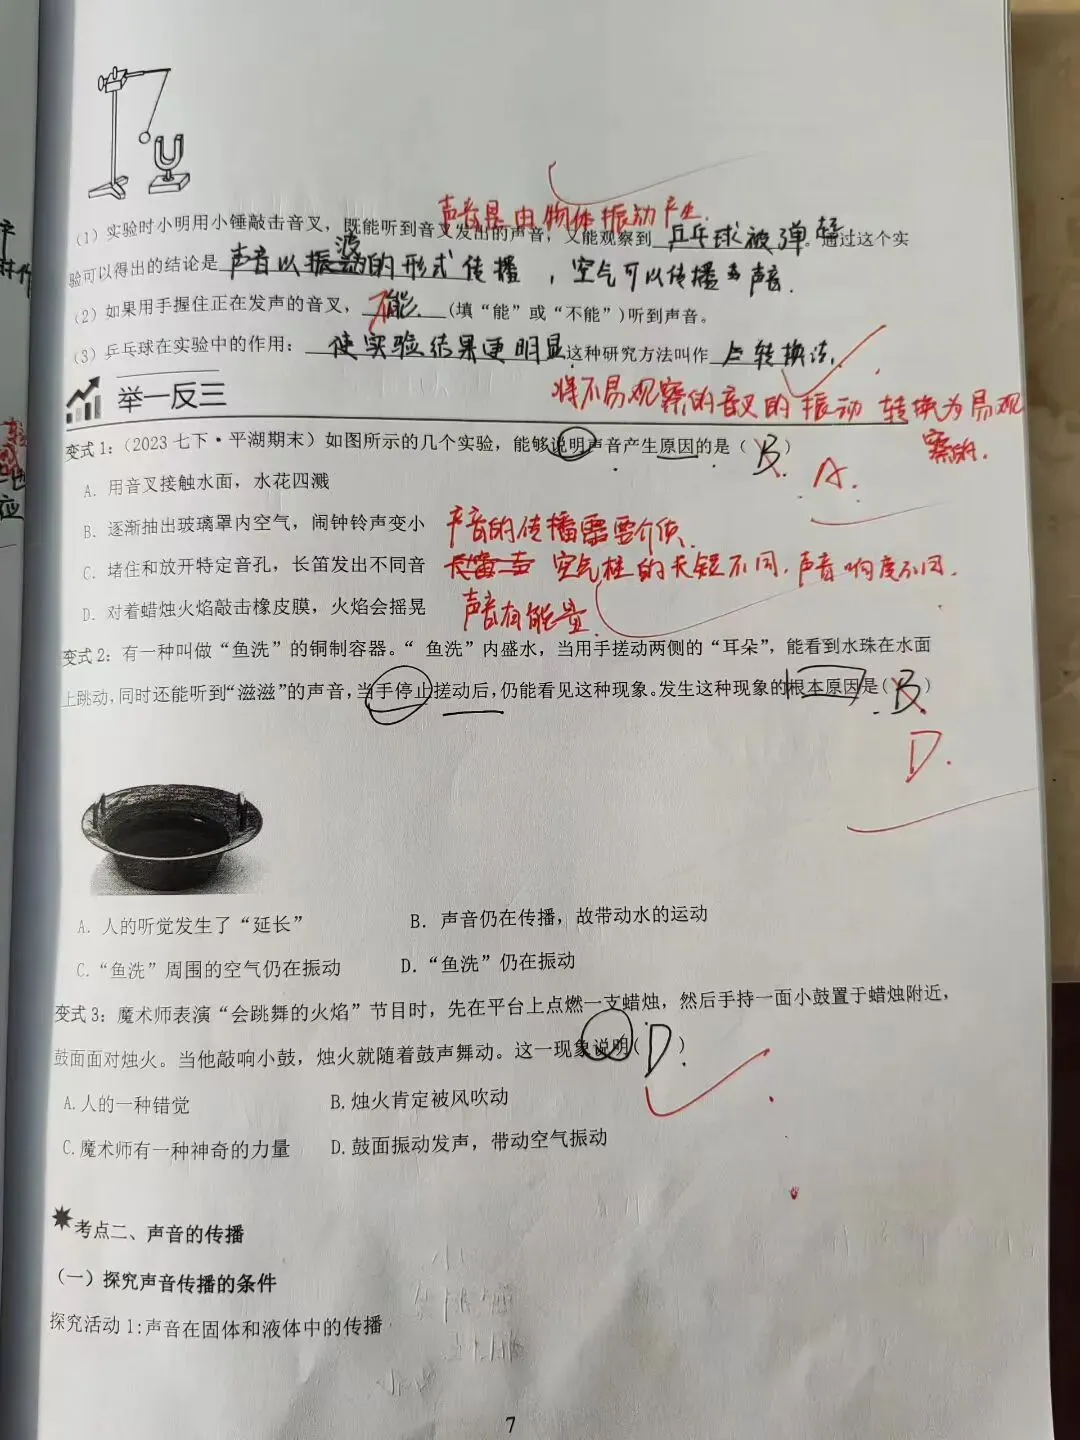 声音是由物体振动产生.
(1)实验时小明用小锤敲击音叉，既能听到音叉发出的声音，又能观察到 乒乓球被弹起。通过这个实
验可以得出的结论是 声音以振动波的形式传播，空气可以传播声音.
(2)如果用手握住正在发声的音叉，不能 (填“能”或“不能”)听到声音。
(3)乒乓球在实验中的作用： 使实验结果更明显 这种研究方法叫作 转换法.
举一反三
将不易观察的音叉的振动转换为易观
察的.
变式1:（2023七下·平湖期末）如图所示的几个实验，能够说明声音产生原因的是（B）
A.
A. 用音叉接触水面，水花四溅
B. 逐渐抽出玻璃罩内空气，闹钟铃声变小 声音的传播需要介质
C. 堵住和放开特定音孔，长笛发出不同音 空气柱的长短不同，声音响度不同.
D. 对着蜡烛火焰敲击橡皮膜，火焰会摇晃 声音有能量
变式2：有一种叫做“鱼洗”的铜制容器。“鱼洗”内盛水，当用手搓动两侧的“耳朵”，能看到水珠在水面
上跳动,同时还能听到“滋滋”的声音,当手停止搓动后,仍能看见这种现象。发生这种现象的根本原因是(B)
D.
A. 人的听觉发生了“延长” B. 声音仍在传播，故带动水的运动
C.“鱼洗”周围的空气仍在振动 D.“鱼洗”仍在振动
变式3：魔术师表演“会跳舞的火焰”节目时，先在平台上点燃一支蜡烛，然后手持一面小鼓置于蜡烛附近，
鼓面面对烛火。当他敲响小鼓，烛火就随着鼓声舞动。这一现象说明(D)
A.人的一种错觉 B.烛火肯定被风吹动
C.魔术师有一种神奇的力量 D.鼓面振动发声，带动空气振动
考点二、声音的传播
（一）探究声音传播的条件
探究活动1:声音在固体和液体中的传播
7